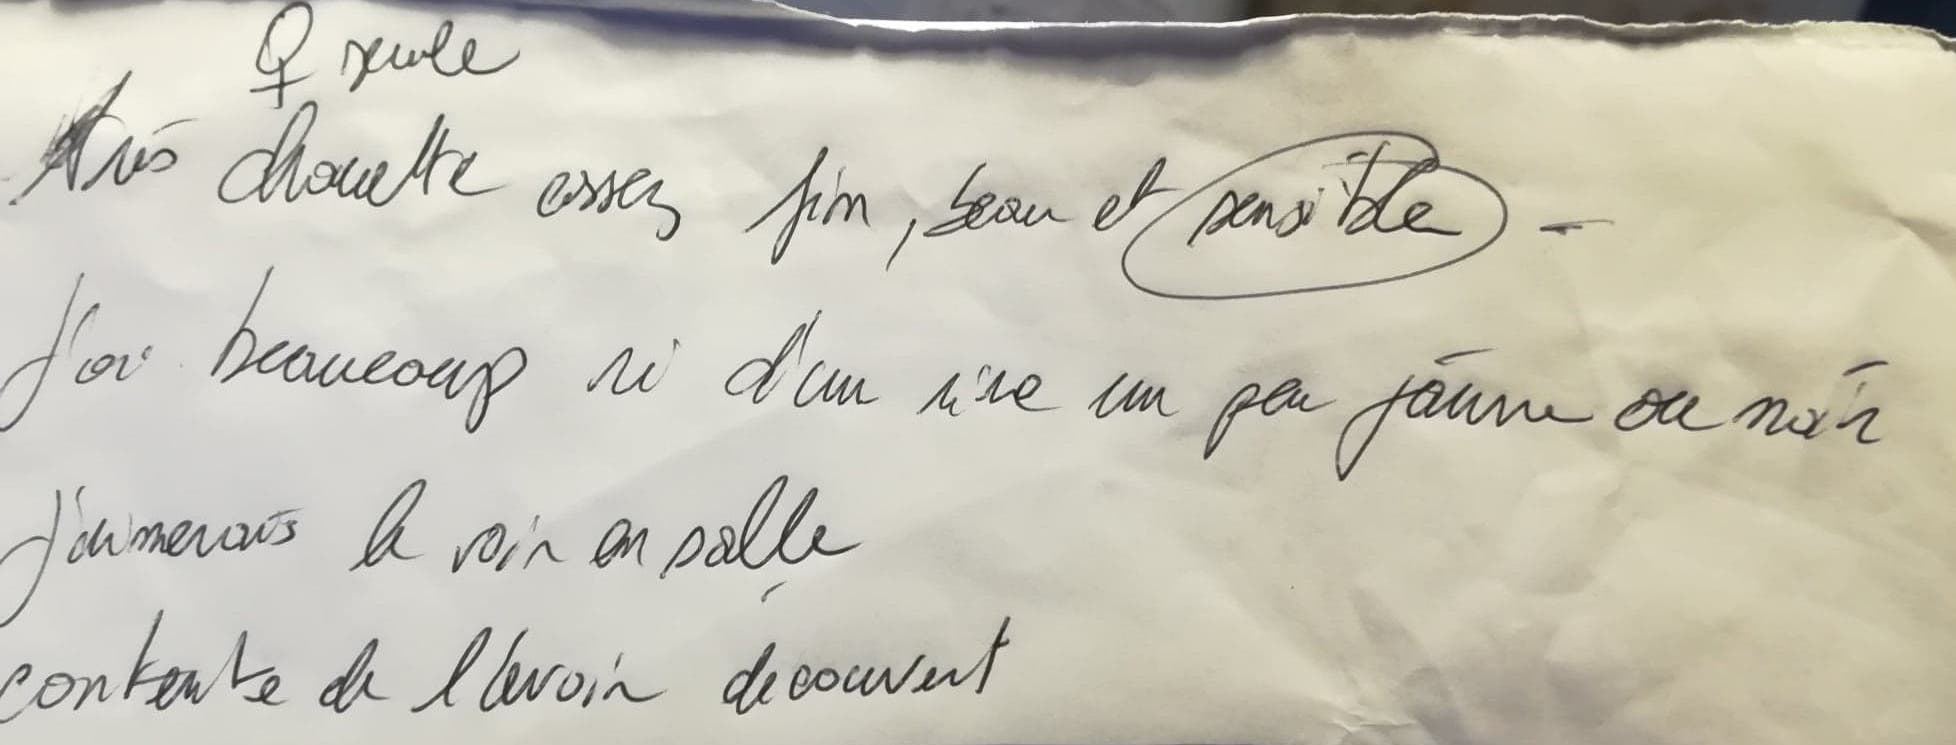 ♀ seule
très chouette assez fin, beau et sensible -
J'ai beaucoup ri d'un rire un peu jaune ou noir
J'aimerais le voir en salle
contente de l'avoir découvert